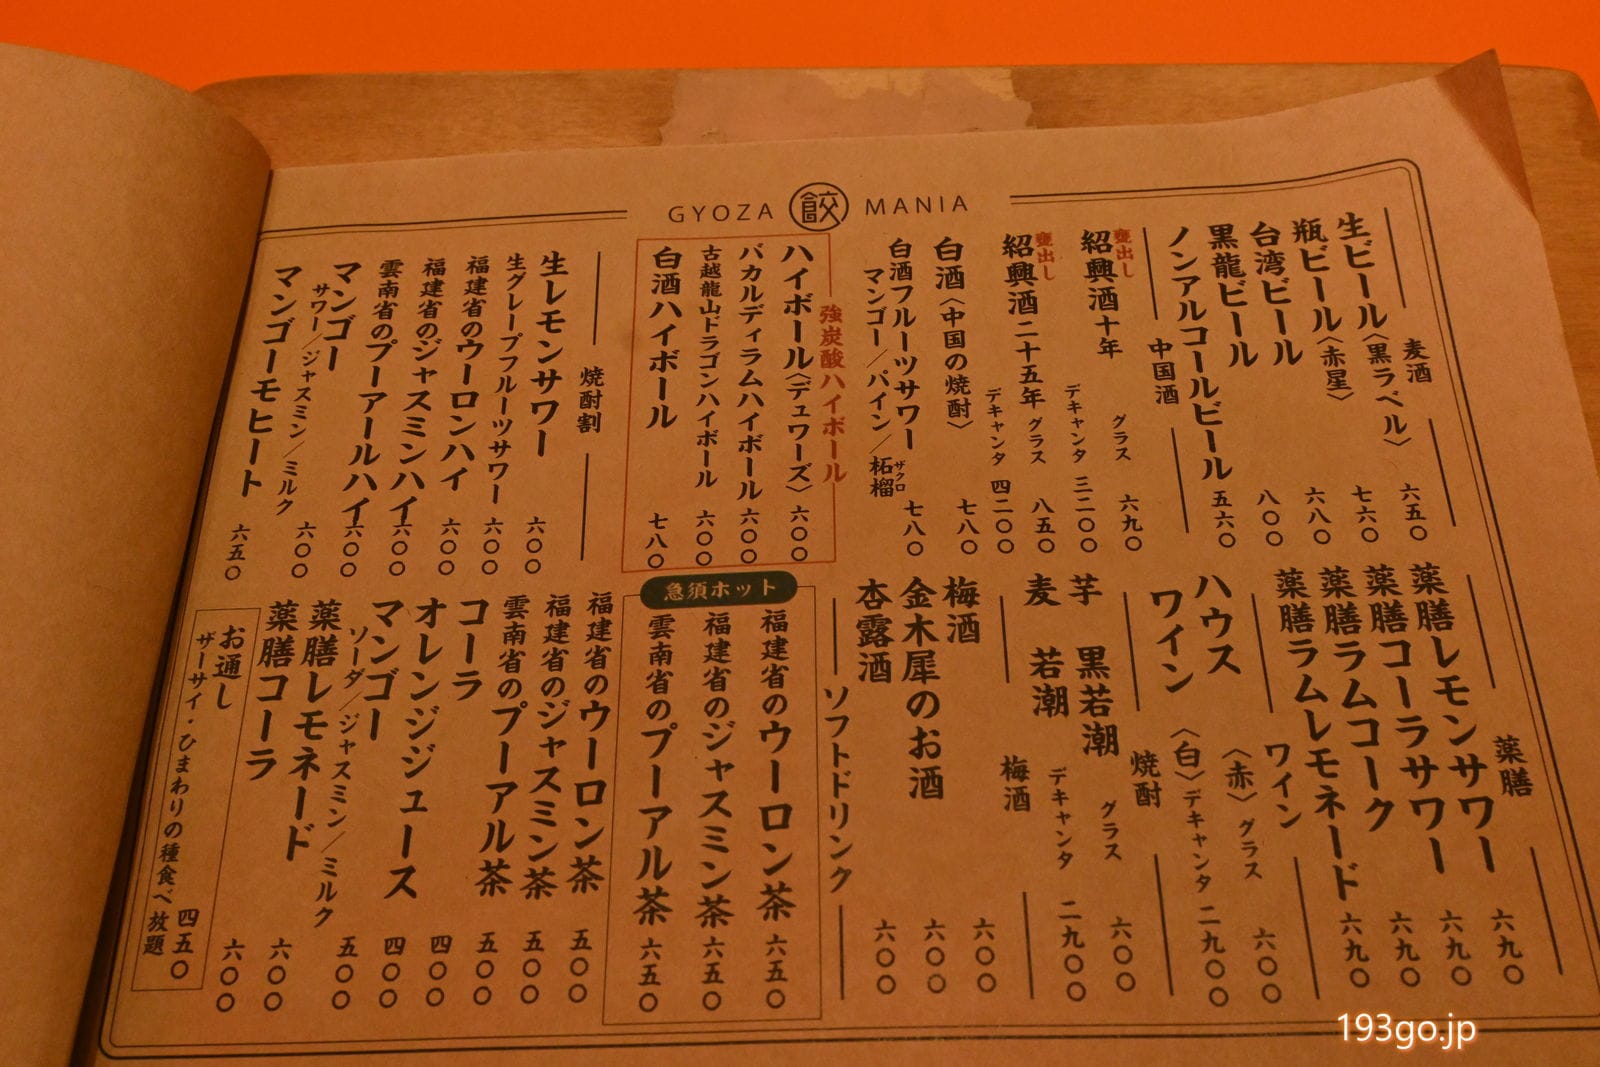 GYOZA 餃 MANIA
麦酒
生ビール〈黒ラベル〉 六五〇
瓶ビール〈赤星〉 七六〇
台湾ビール 六八〇
黒龍ビール 八〇〇
ノンアルコールビール 五六〇
中国酒
甕出し
紹興酒十年 グラス 六九〇
デキャンタ 三二〇〇
甕出し
紹興酒二十五年 グラス 八五〇
デキャンタ 四二〇〇
白酒〈中国の焼酎〉 七八〇
白酒フルーツサワー 七八〇
マンゴー／パイン／柘榴
ザクロ
強炭酸ハイボール
ハイボール〈デュワーズ〉 六〇〇
バカルディラムハイボール 六〇〇
古越龍山ドラゴンハイボール 六〇〇
白酒ハイボール 七八〇
焼酎割
生レモンサワー 六〇〇
生グレープフルーツサワー 六〇〇
福建省のウーロンハイ 六〇〇
福建省のジャスミンハイ 六〇〇
雲南省のプーアールハイ 六〇〇
マンゴー 六〇〇
サワー／ジャスミン／ミルク
マンゴーモヒート 六五〇
薬膳
薬膳レモンサワー 六九〇
薬膳コーラサワー 六九〇
薬膳ラムコーク 六九〇
薬膳ラムレモネード 六九〇
ワイン
ハウスワイン 〈赤〉グラス 六〇〇
〈白〉デキャンタ 二九〇〇
焼酎
芋 黒若潮 グラス 六〇〇
麦 若潮 デキャンタ 二九〇〇
梅酒
梅酒 六〇〇
金木犀のお酒 六〇〇
杏露酒 六〇〇
ソフトドリンク
急須ホット
福建省のウーロン茶 六五〇
福建省のジャスミン茶 六五〇
雲南省のプーアル茶 六五〇
福建省のウーロン茶 五〇〇
福建省のジャスミン茶 五〇〇
雲南省のプーアル茶 五〇〇
コーラ 四〇〇
オレンジジュース 四〇〇
マンゴー 五〇〇
ソーダ／ジャスミン／ミルク
薬膳レモネード 六〇〇
薬膳コーラ 六〇〇
お通し 四五〇
ザーサイ・ひまわりの種食べ放題
193go.jp